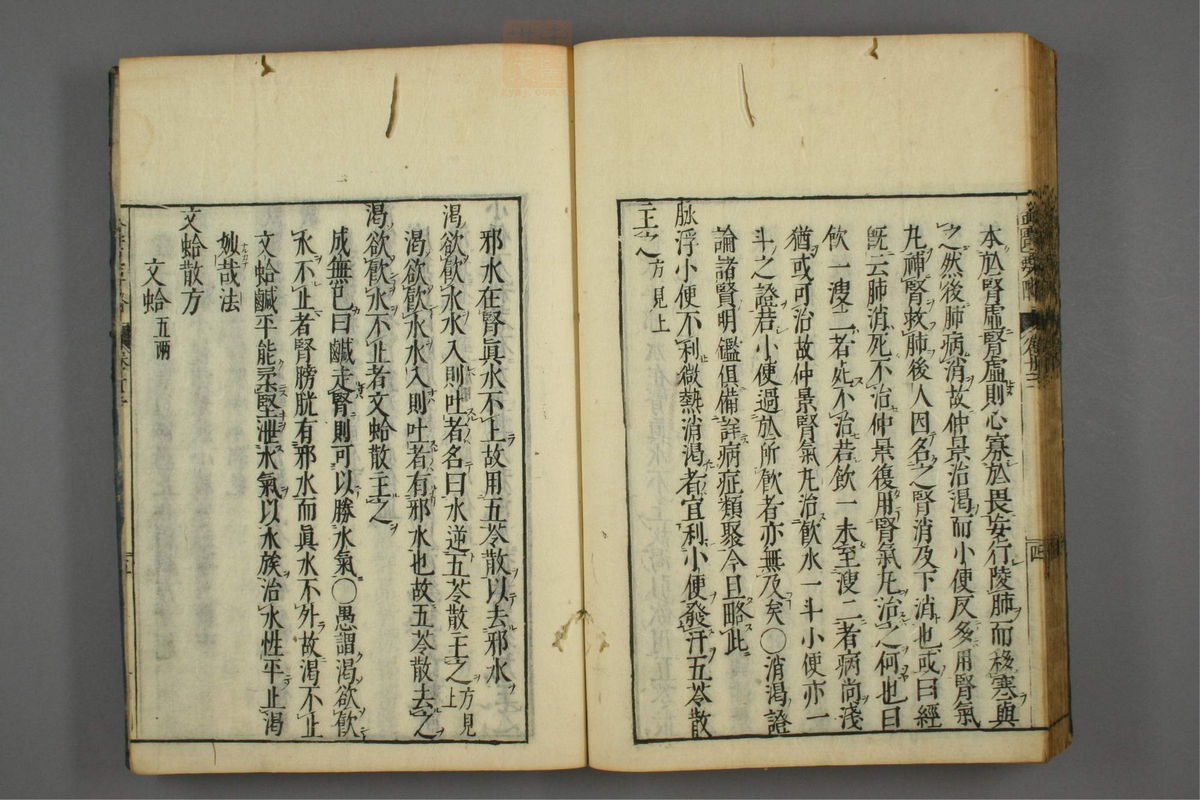 本於腎虛腎虛則心寡於畏妄行陵肺而移寒與
之然後肺病消故仲景治渴而小便反多用腎氣
丸補腎救肺後人因名之腎消及下消也或曰經
既云肺消死不治仲景復用腎氣丸治之何也曰
飲一溲二者死不治若飲一未至溲二者病尚淺
猶或可治故仲景腎氣丸治飲水一斗小便亦一
斗之證若小便過於所飲者亦無及矣〇消渴證
論諸賢明鑑俱備詳病症類聚今且略此
脉浮小便不利微熱消渴者宜利小便發汗五苓散
主之方見上
邪水在腎眞水不上故用五苓散以去邪水
渴欲飲水水入則吐者名曰水逆五苓散主之方見上
渴欲飲水水入則吐者有邪水也故五苓散去之
渴欲飲水不止者文蛤散主之
成無已曰鹹走腎則可以勝水氣〇愚謂渴欲飲
水不止者腎膀胱有邪水而眞水不外故渴不止
文蛤鹹平能柔堅泄水氣以水族治水性平止渴
妙哉法
文蛤散方
文蛤五兩